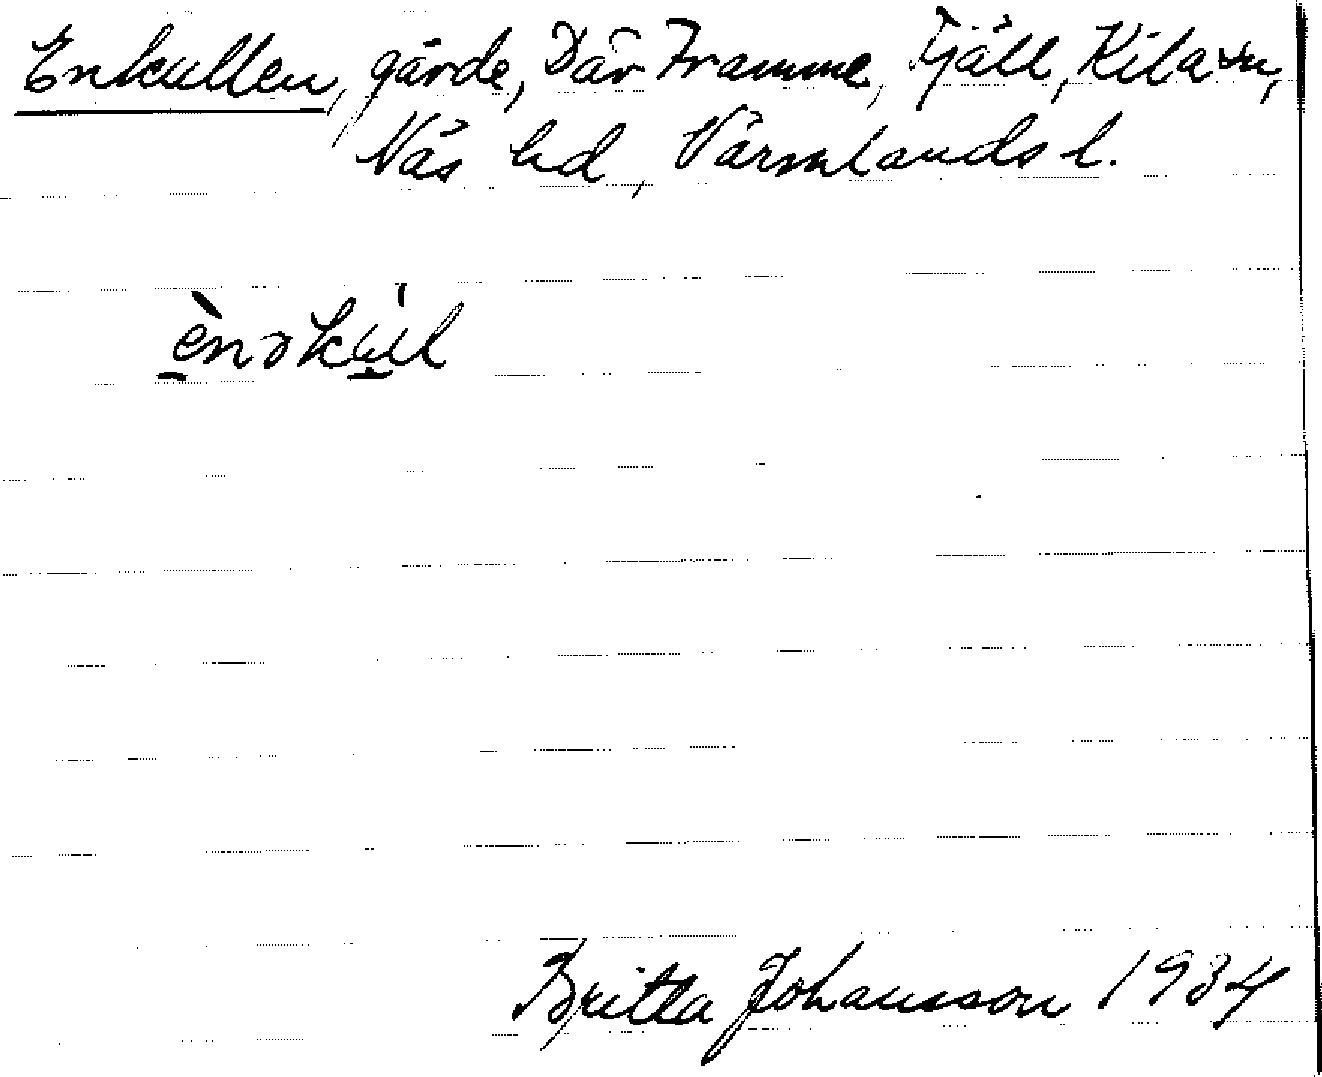 Enkullen, gärde, Där Framme, Fjäll, Kila sn,
Näs hd, Värmlands l.
ènəkúl
Britta Johansson 1934